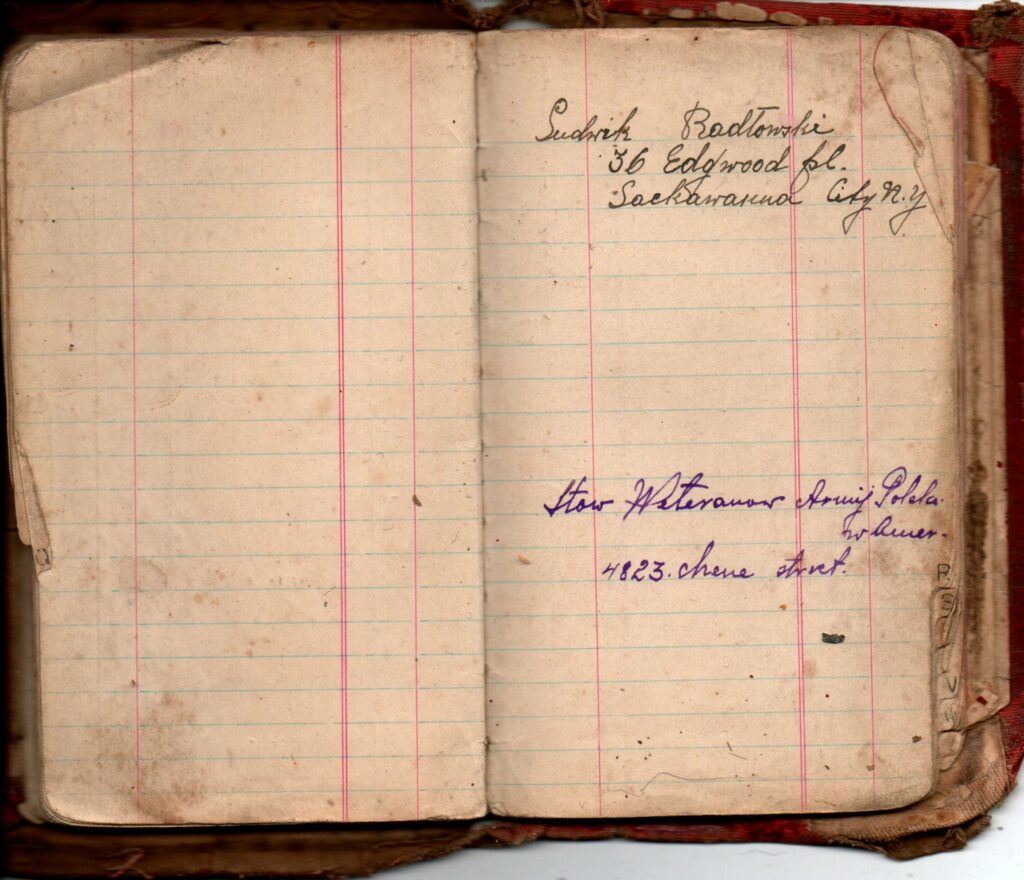 Ludwik Radłowski
36 Edgwood pl.
Lackawanna City N.Y
Stow Weteranow Armij Polsk.
w Amer.
4823. chene stret.
R
S